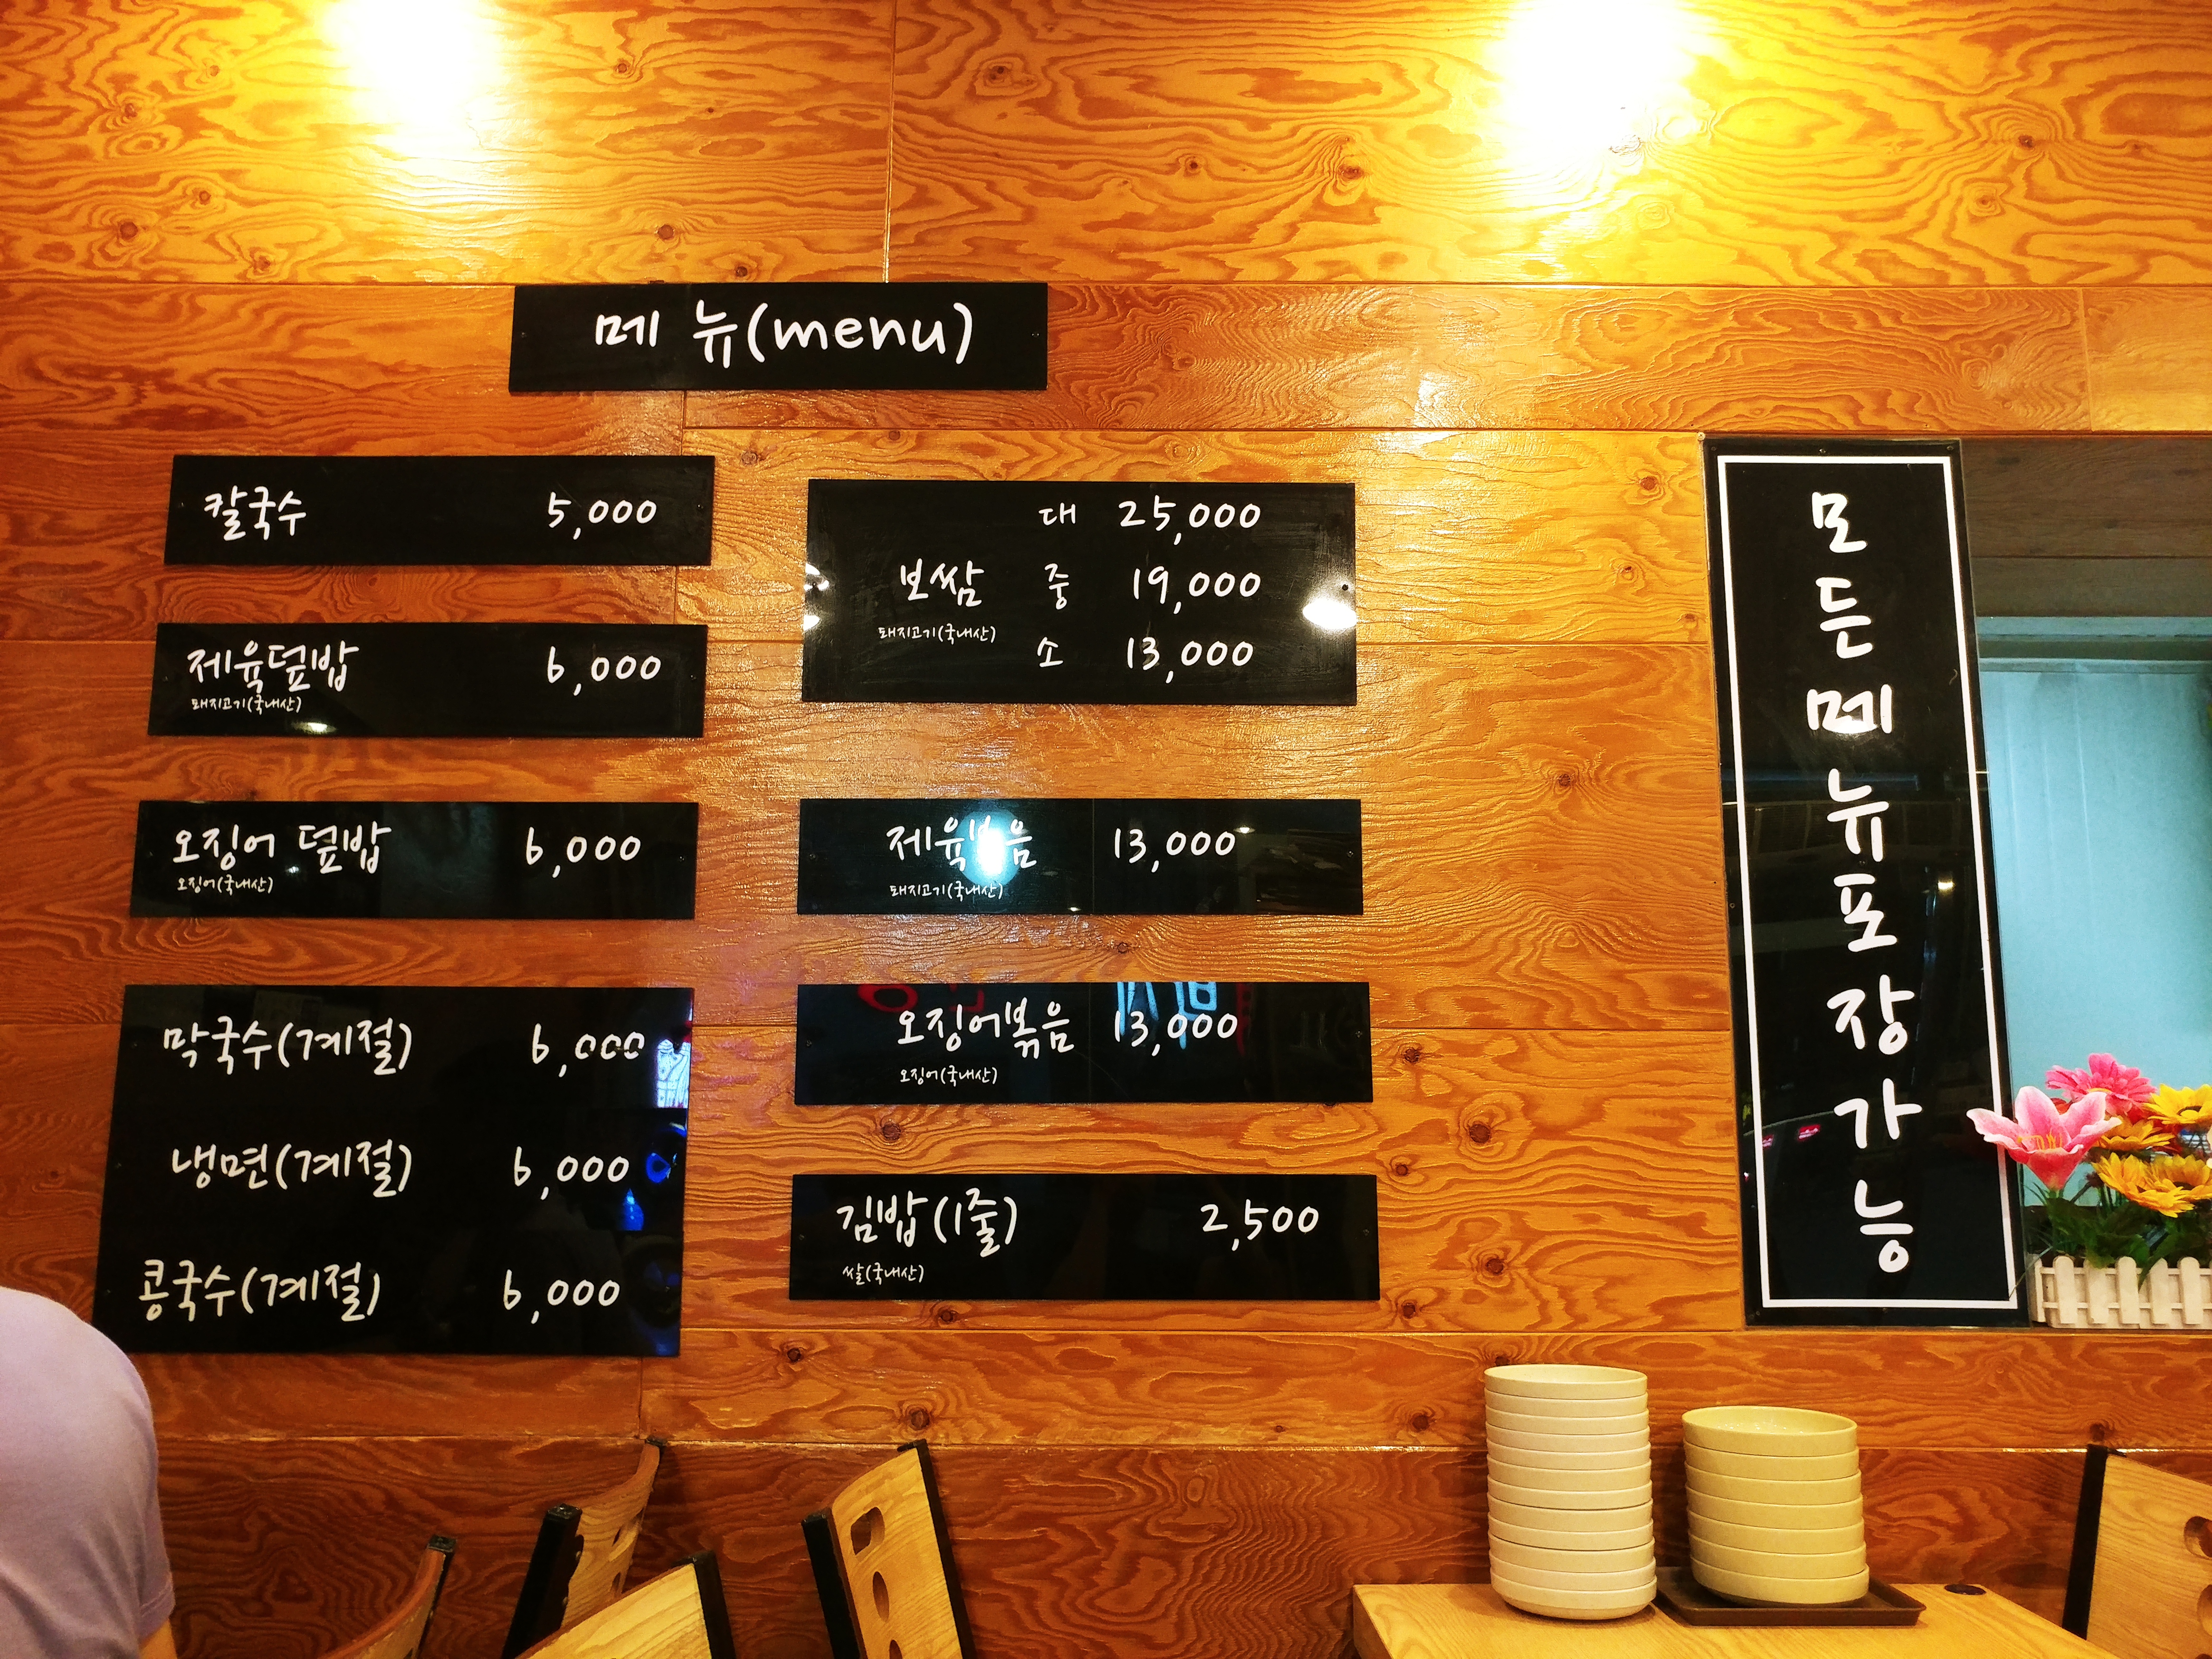 메 뉴(menu)
칼국수 5,000
제육덮밥 6,000
돼지고기(국내산)
오징어 덮밥 6,000
오징어(국내산)
막국수(계절) 6,000
냉면(계절) 6,000
콩국수(계절) 6,000
대 25,000
보쌈 중 19,000
돼지고기(국내산)
소 13,000
제육볶음 13,000
돼지고기(국내산)
오징어볶음 13,000
오징어(국내산)
김밥(1줄) 2,500
쌀(국내산)
모든메뉴포장가능